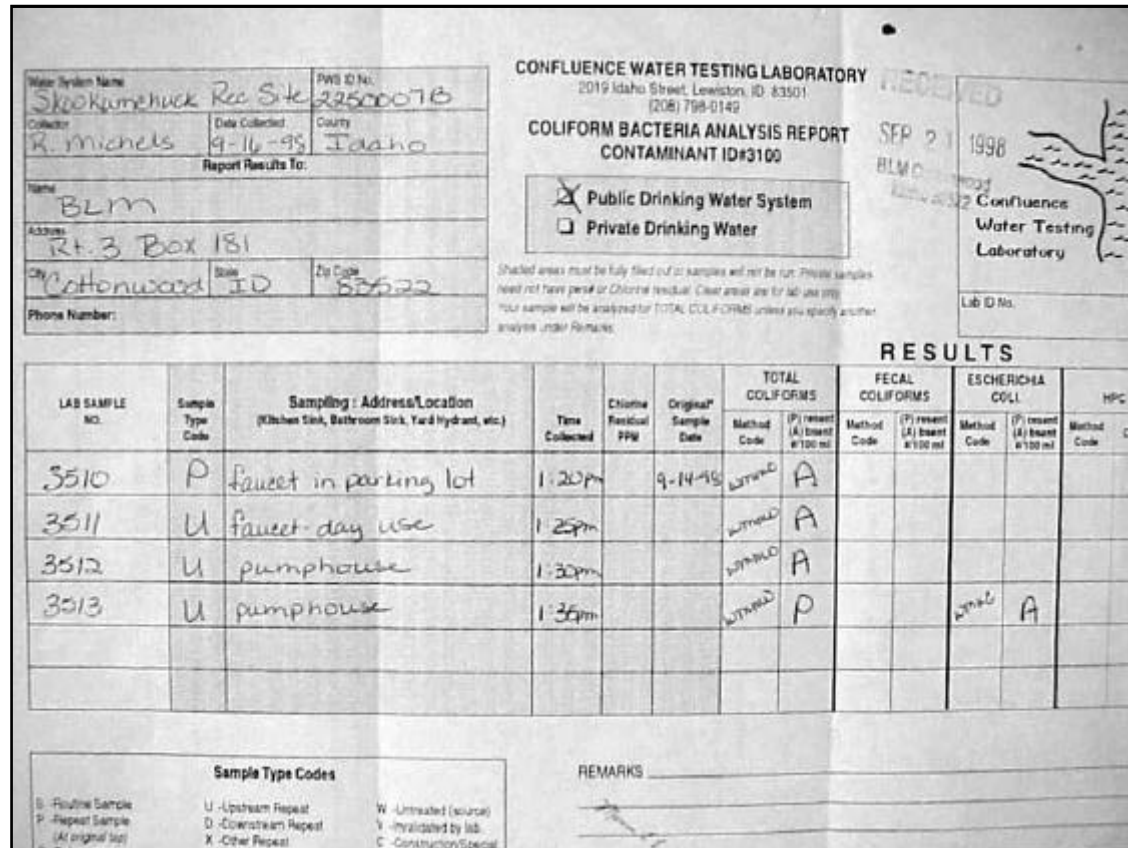 Water System Name PWS ID No.
Skookumchuck Rec Site 2250007B
Collector Date Collected County
R. Michels 9-16-98 Idaho
Report Results To:
Name
BLM
Address
Rt. 3 Box 181
City State Zip Code
Cottonwood ID 83522
Phone Number:
CONFLUENCE WATER TESTING LABORATORY
2019 Idaho Street, Lewiston, ID 83501
(208) 798-0149
COLIFORM BACTERIA ANALYSIS REPORT
CONTAMINANT ID#3100
Public Drinking Water System
Private Drinking Water
Shaded areas must be fully filled out or samples will not be run. Private samples
need not have pws# or Chlorine residual. Clear areas are for lab use only.
Your sample will be analyzed for TOTAL COLIFORMS unless you specify another
analysis under Remarks.
RECEIVED
SEP 21 1998
BLM
Confluence
Water Testing
Laboratory
Lab ID No.
RESULTS
LAB SAMPLE NO. Sample Type Code Sampling : Address/Location (Kitchen Sink, Bathroom Sink, Yard Hydrant, etc.) Time Collected Chlorine Residual PPM Original* Sample Date
TOTAL COLIFORMS FECAL COLIFORMS ESCHERICHIA COLI. HPC
Method Code (P) resent (A) bsent #/100 ml Method Code (P) resent (A) bsent #/100 ml Method Code (P) resent (A) bsent #/100 ml Method Code
3510 P faucet in parking lot 1:20pm 9-14-98 A
3511 U faucet-day use 1:25pm A
3512 U pumphouse 1:30pm A
3513 U pumphouse 1:35pm P A
Sample Type Codes
S -Routine Sample U -Upstream Repeat W -Untreated (source)
P -Repeat Sample D -Downstream Repeat V -Invalidated by lab
(At original tap) X -Other Repeat C -Construction/Special
REMARKS